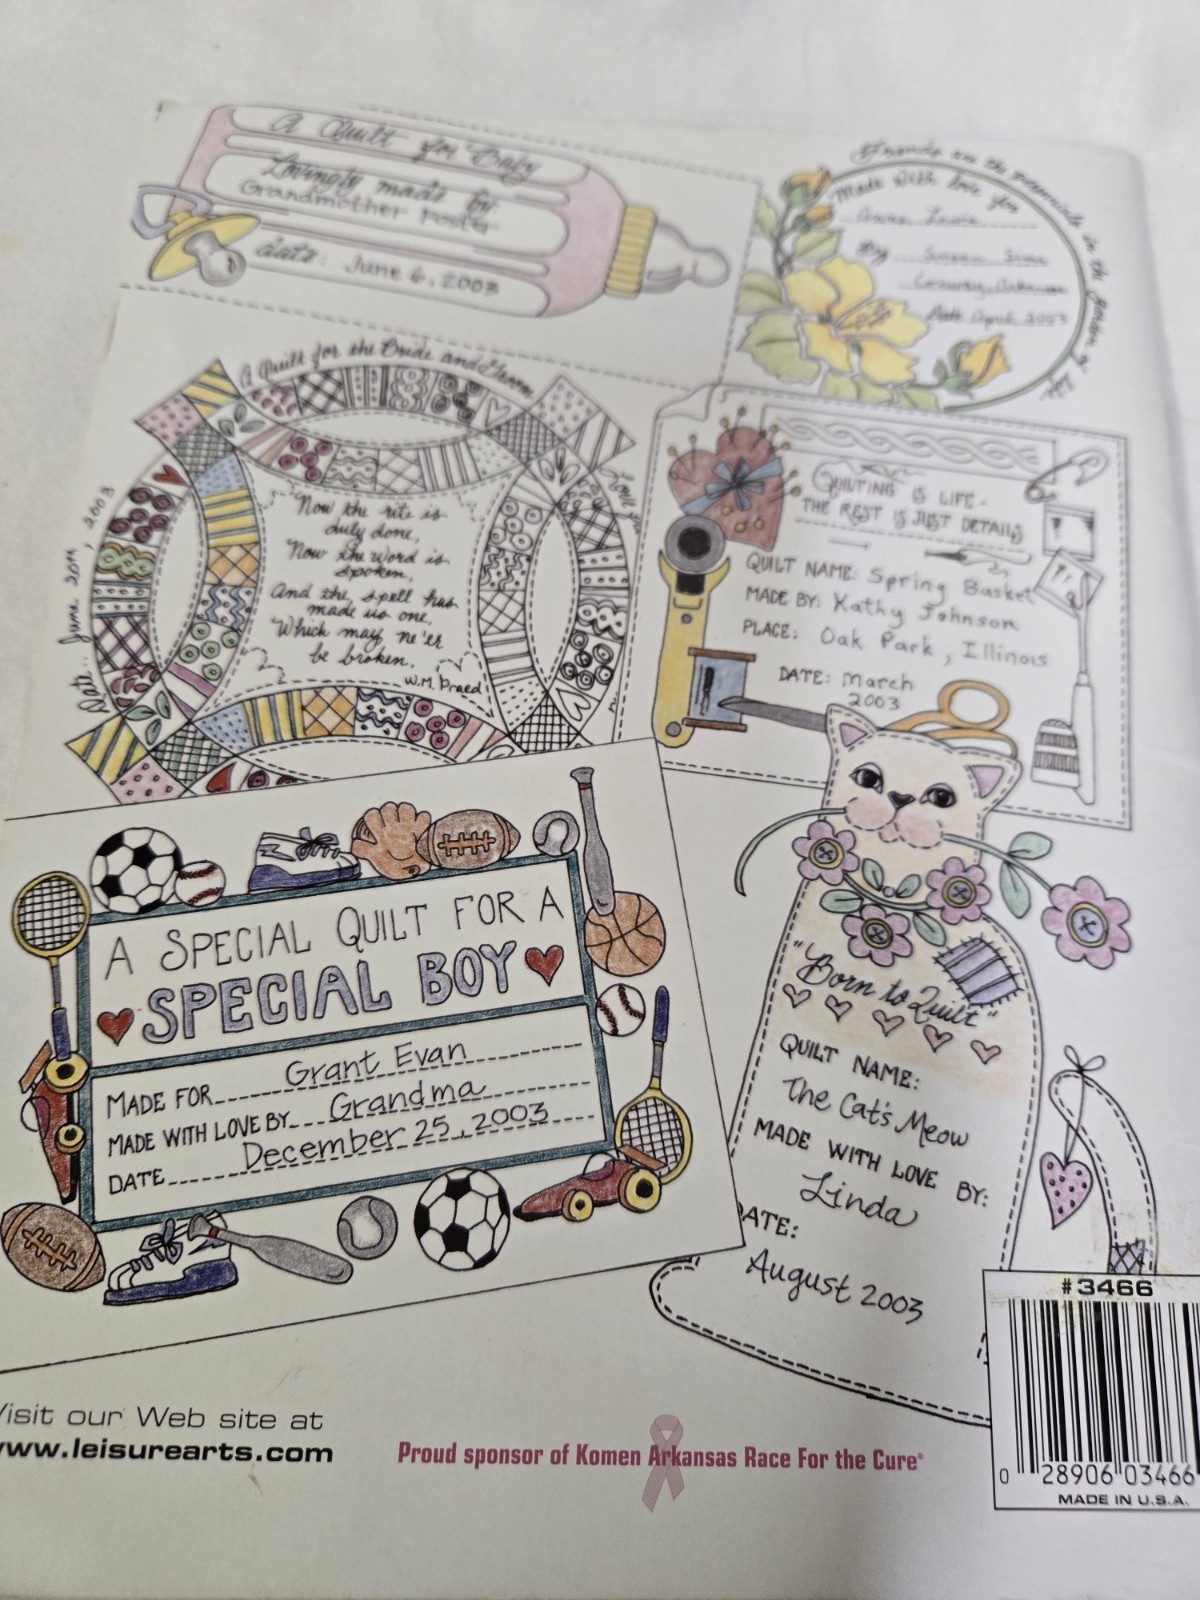 A Quilt for Baby
Lovingly made by:
Grandmother Foster
date: June 6, 2003
Friends are the perennials in the garden of life
Made with love for
Anna Lewis
By Susan Sims
Conway, Arkansas
Date April 2003
A Quilt for the Bride and Groom
Date: June 20th, 2003
Now the rite is
duly done,
Now the word is
spoken,
And the spell has
made us one,
Which may ne'er
be broken.
W.M. Praed
QUILTING IS LIFE -
THE REST IS JUST DETAILS
QUILT NAME: Spring Basket
MADE BY: Kathy Johnson
PLACE: Oak Park, Illinois
DATE: March
2003
A SPECIAL QUILT FOR A
SPECIAL BOY
MADE FOR Grant Evan
MADE WITH LOVE BY Grandma
DATE December 25, 2003
"Born to Quilt"
QUILT NAME:
The Cat's Meow
MADE WITH LOVE BY:
Linda
DATE:
August 2003
#3466
0 28906 03466
MADE IN U.S.A.
Visit our Web site at
www.leisurearts.com
Proud sponsor of Komen Arkansas Race For the Cure®